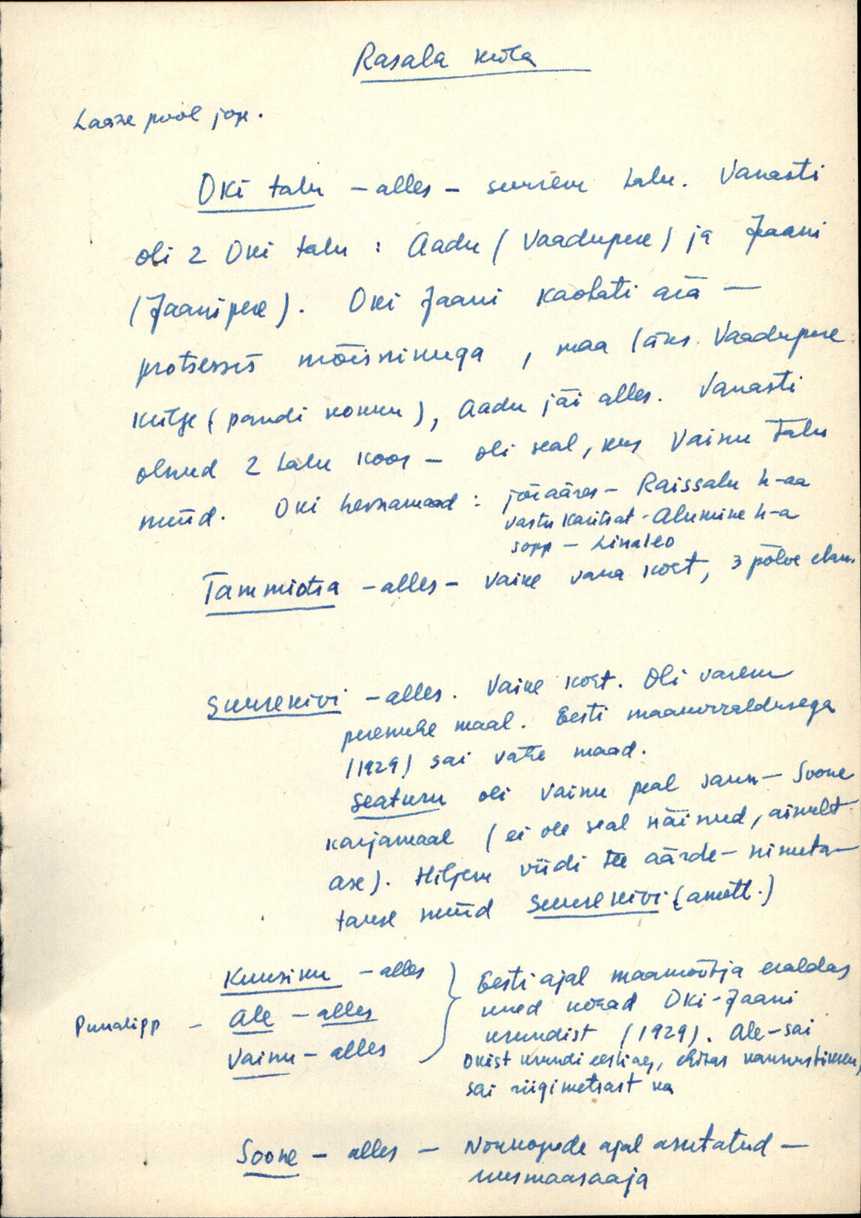 Rasala küla
Lääne pool jõge.
Oki talu – alles – suurem talu. Vanasti
oli 2 Oki talu : Aadu (Vaadupere) ja Jaani
(Jaanipere). Oki Jaani kaotati ära —
protsessis mõisnikuga, maa läks Vaadupere
külge (pandi kokku), Aadu jäi alles. Vanasti
olnud 2 talu koos – oli seal, kus Vainu talu
nüüd. Oki heinamaad : jõeääres – Raissalu h-aa
vastu Karitsat – Alumine h-a
sopp – Linaleo
Tammiotsa – alles – väike vana koht, 3 põlve elan.
Suurekivi – alles. Väike koht. Oli varem
peremehe maal. Eesti maakorraldusega
(1929) sai vähe maad.
Seaturu oli Vainu peal saun – Soone
karjamaal (ei ole seal näinud, ainult
ase). Hiljem viidi tee äärde – nimeta-
takse nüüd Suurekivi (ametl.)
Kuusiku – alles
Punalipp – Ale – alles
Vainu – alles
Eesti ajal maamõõtja eraldas
need kohad Oki-Jaani
krundist (1929). Ale – sai
Okist krundi eesti aeg, ehitas
sai riigimetsast ka
Soone – alles – Nõukogude ajal asutatud –
uusmaasaaja